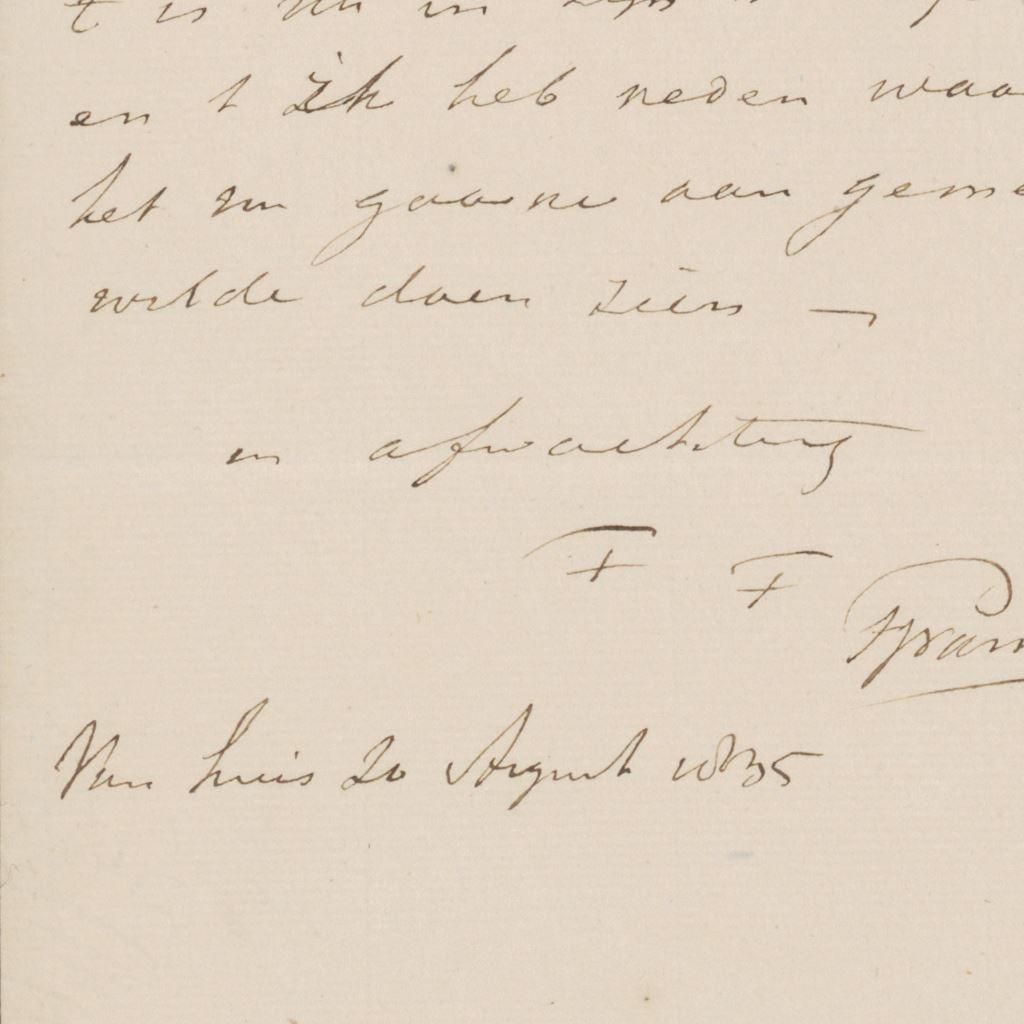 t is nu in zijn
en t ik heb reden waa
het nu gaarne aan geme
wilde doen zien —
in afwachting
F F
Van huis 20 August 1835